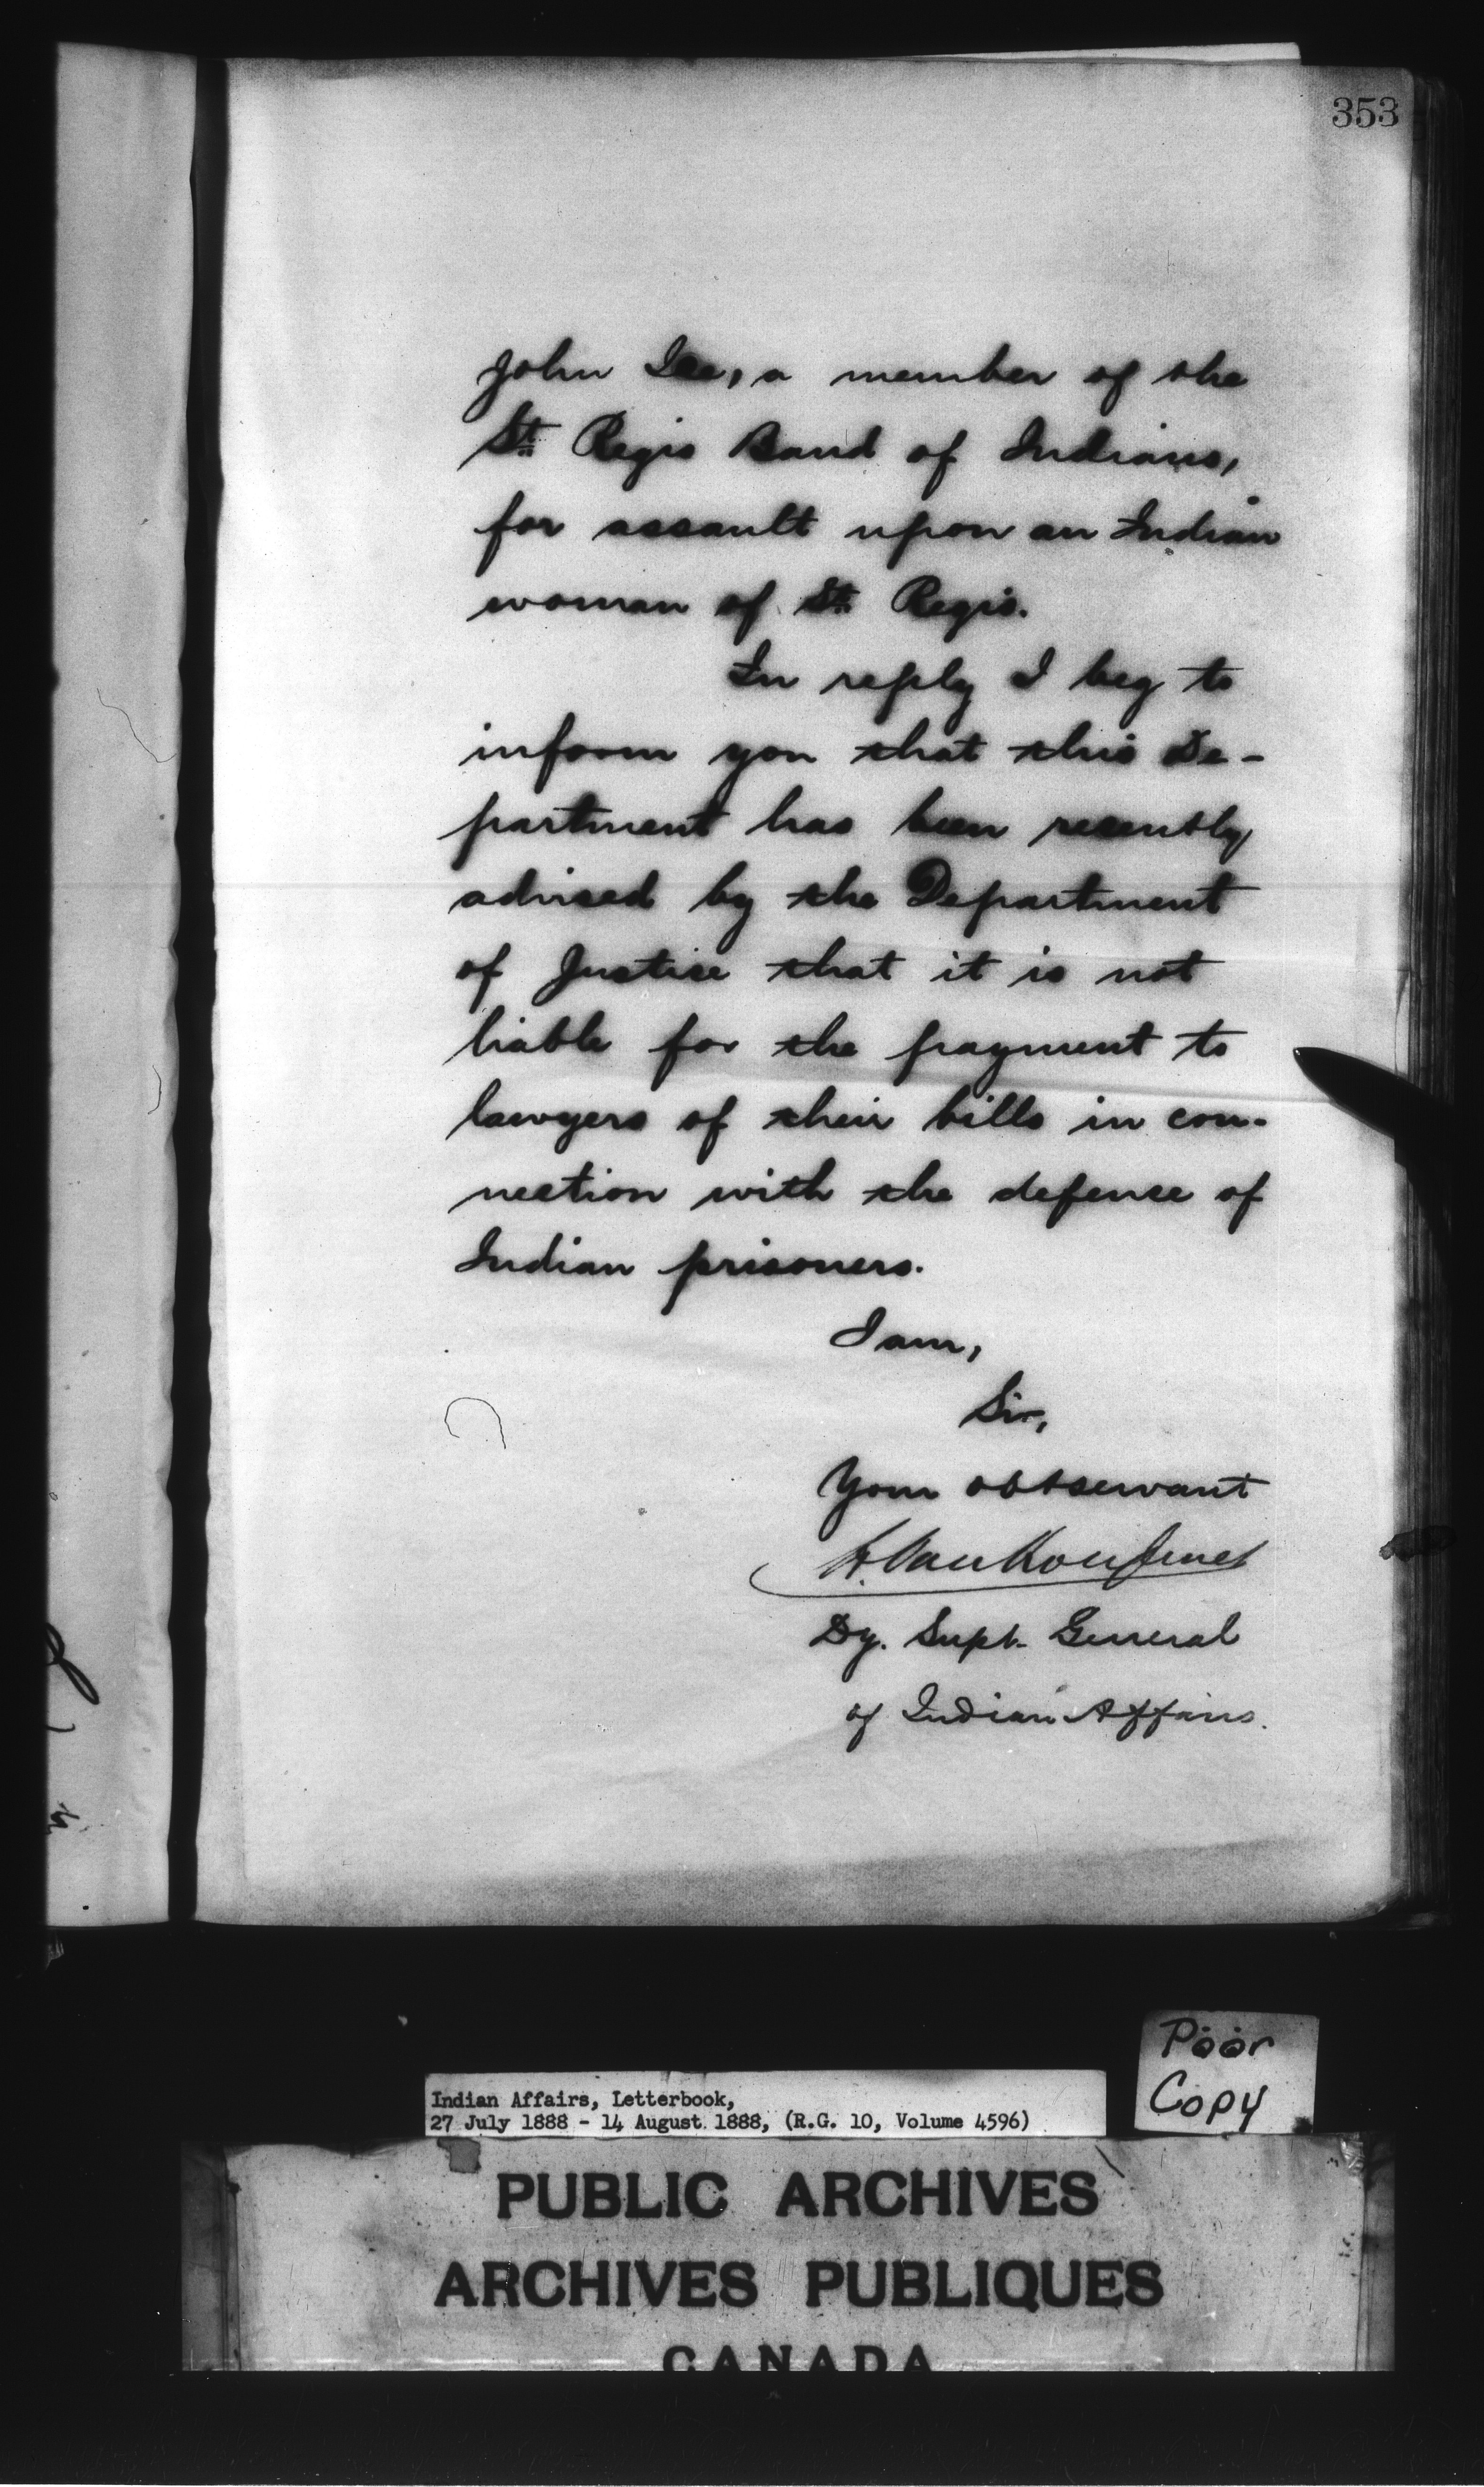 353
John Lee, a member of the
St. Regis Band of Indians,
for assault upon an Indian
woman of St. Regis.
In reply I beg to
inform you that this De-
partment has been recently
advised by the Department
of Justice that it is not
liable for the payment to
lawyers of their bills in con-
nection with the defence of
Indian prisoners.
I am,
Sir,
Your obt servant
L. VanKoughnet
Dy. Supt. General
of Indian Affairs.
Poor
Copy
Indian Affairs, Letterbook,
27 July 1888 - 14 August 1888, (R.G. 10, Volume 4596)
PUBLIC ARCHIVES
ARCHIVES PUBLIQUES
CANADA